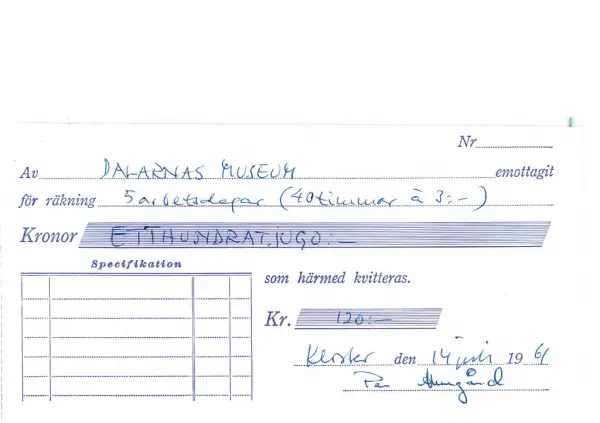 Nr
Av DALARNAS MUSEUM emottagit
för räkning 5 arbetsdagar (40 timmar à 3:-)
Kronor ETTHUNDRATJUGO:-
Specifikation
som härmed kvitteras.
Kr. 120:-
Kloster den 14 juli 1961
Per